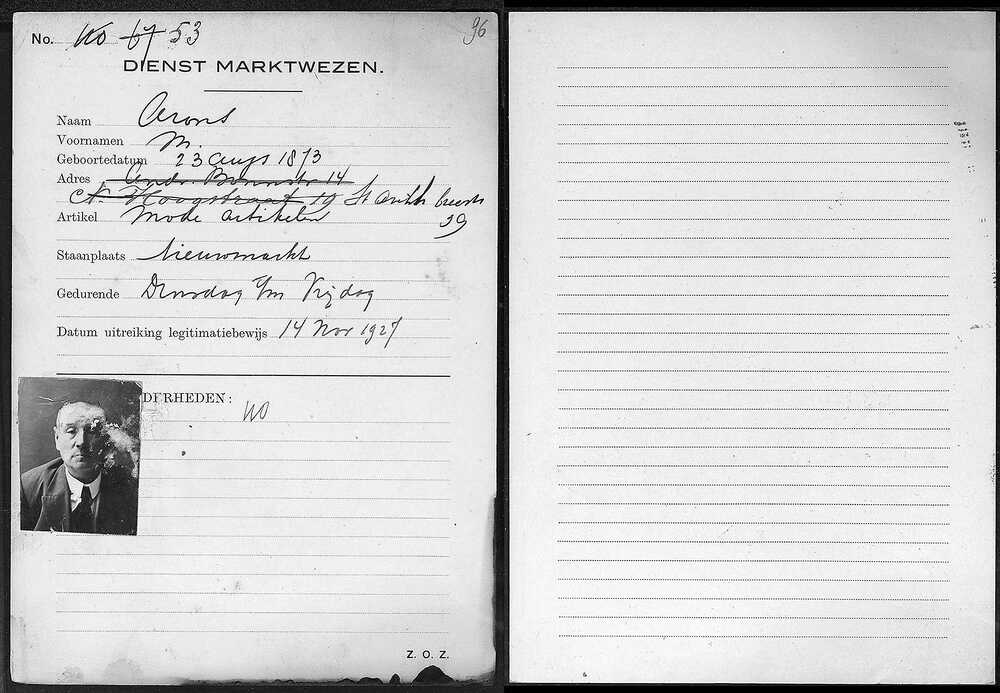 No. 110 67 53
96
DIENST MARKTWEZEN.
Naam Arons
Voornamen M.
Geboortedatum 23 Augs 1873
Adres Andr. Bonnstr 14
N. Hoogstraat 19 St Anth breestr
Artikel Mode artikelen 39
Staanplaats Nieuwmarkt
Gedurende Dinsdag t/m Vrijdag
Datum uitreiking legitimatiebewijs 14 Nov 1927
DERHEDEN:
110
Z. O. Z.